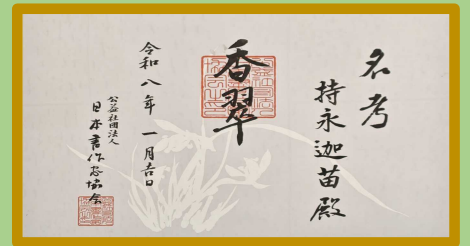 名考
持永迦苗殿
香翠
令和八年一月吉日
公益社団法人
日本書作家協会